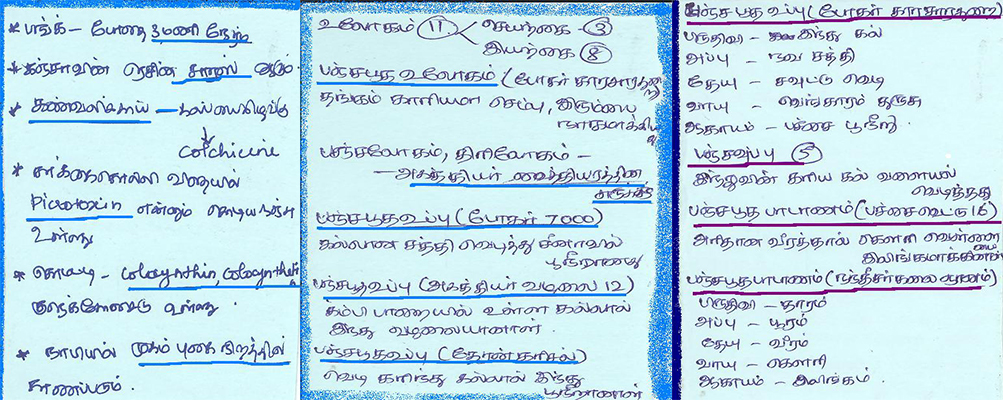 * பங்க் - போதை உமணி நேரம்
* கஞ்சாவின் ரெசின் சாரஸ் ஆகும்.
* கண்வலிக்காய் -
Colchicine
* காக்கைகொல்லி விதையில்
Picrotoxin என்னும் கொடிய நஞ்சு
உள்ளது
* கொமட்டி - Colocynthin, Colocynthetin
குளுக்கோசைடு உள்ளது.
* நாபியில் புகை நிறத்தில்
காணப்படும்.
உலோகம் 11 செயற்கை - 3
இயற்கை 8
பஞ்சபூத உலோகம் (போகர் காரசாரதுறை)
தங்கம் காரியமா செம்பு, இரும்பை
நாகமாக்கிய
பஞ்சலோகம், திரிலோகம் -
- அகத்தியர் வைத்தியரத்தின
சுருக்கம்
பஞ்சபூதவுப்பு (போகர் 7000)
கல்லான சத்தி வெடித்து சீனாவில்
பூநீறானது
பஞ்சபூதவுப்பு (அகத்தியர் வழலை 12)
கம்பி பாறையில் உள்ள கல்லால்
இந்து வழலையானாள்.
பஞ்சபூதவுப்பு (தோண்காசில்)
வெடி காரிந்து கல்லால் இந்து
பூநீறானாள்
பஞ்சபூத உப்பு (போகர் காரசாரதுறை)
பிருதிவி - இந்து கல்
அப்பு - நவ சத்தி
தேயு - சவுட்டு வெடி
வாயு - வெங்காரம் துருசு
ஆகாயம் - பச்சை பூநீறு.
பஞ்சவுப்பு 5
இந்துவின் காரிய கல் வளையல்
வெடித்தது
பஞ்சபூத பாடாணம் (பச்சைவெட்டு 16)
அரிதான வீரத்தால் கௌரி வெள்ளை
யை இலிங்கமாக்கினேன்
பஞ்சபூதபாடாணம் (நந்தீசர்கலை ஞானம்)
பிருதிவி - தாரம்
அப்பு - பூரம்
தேயு - வீரம்
வாயு - கௌரி
ஆகாயம் - இலிங்கம்.